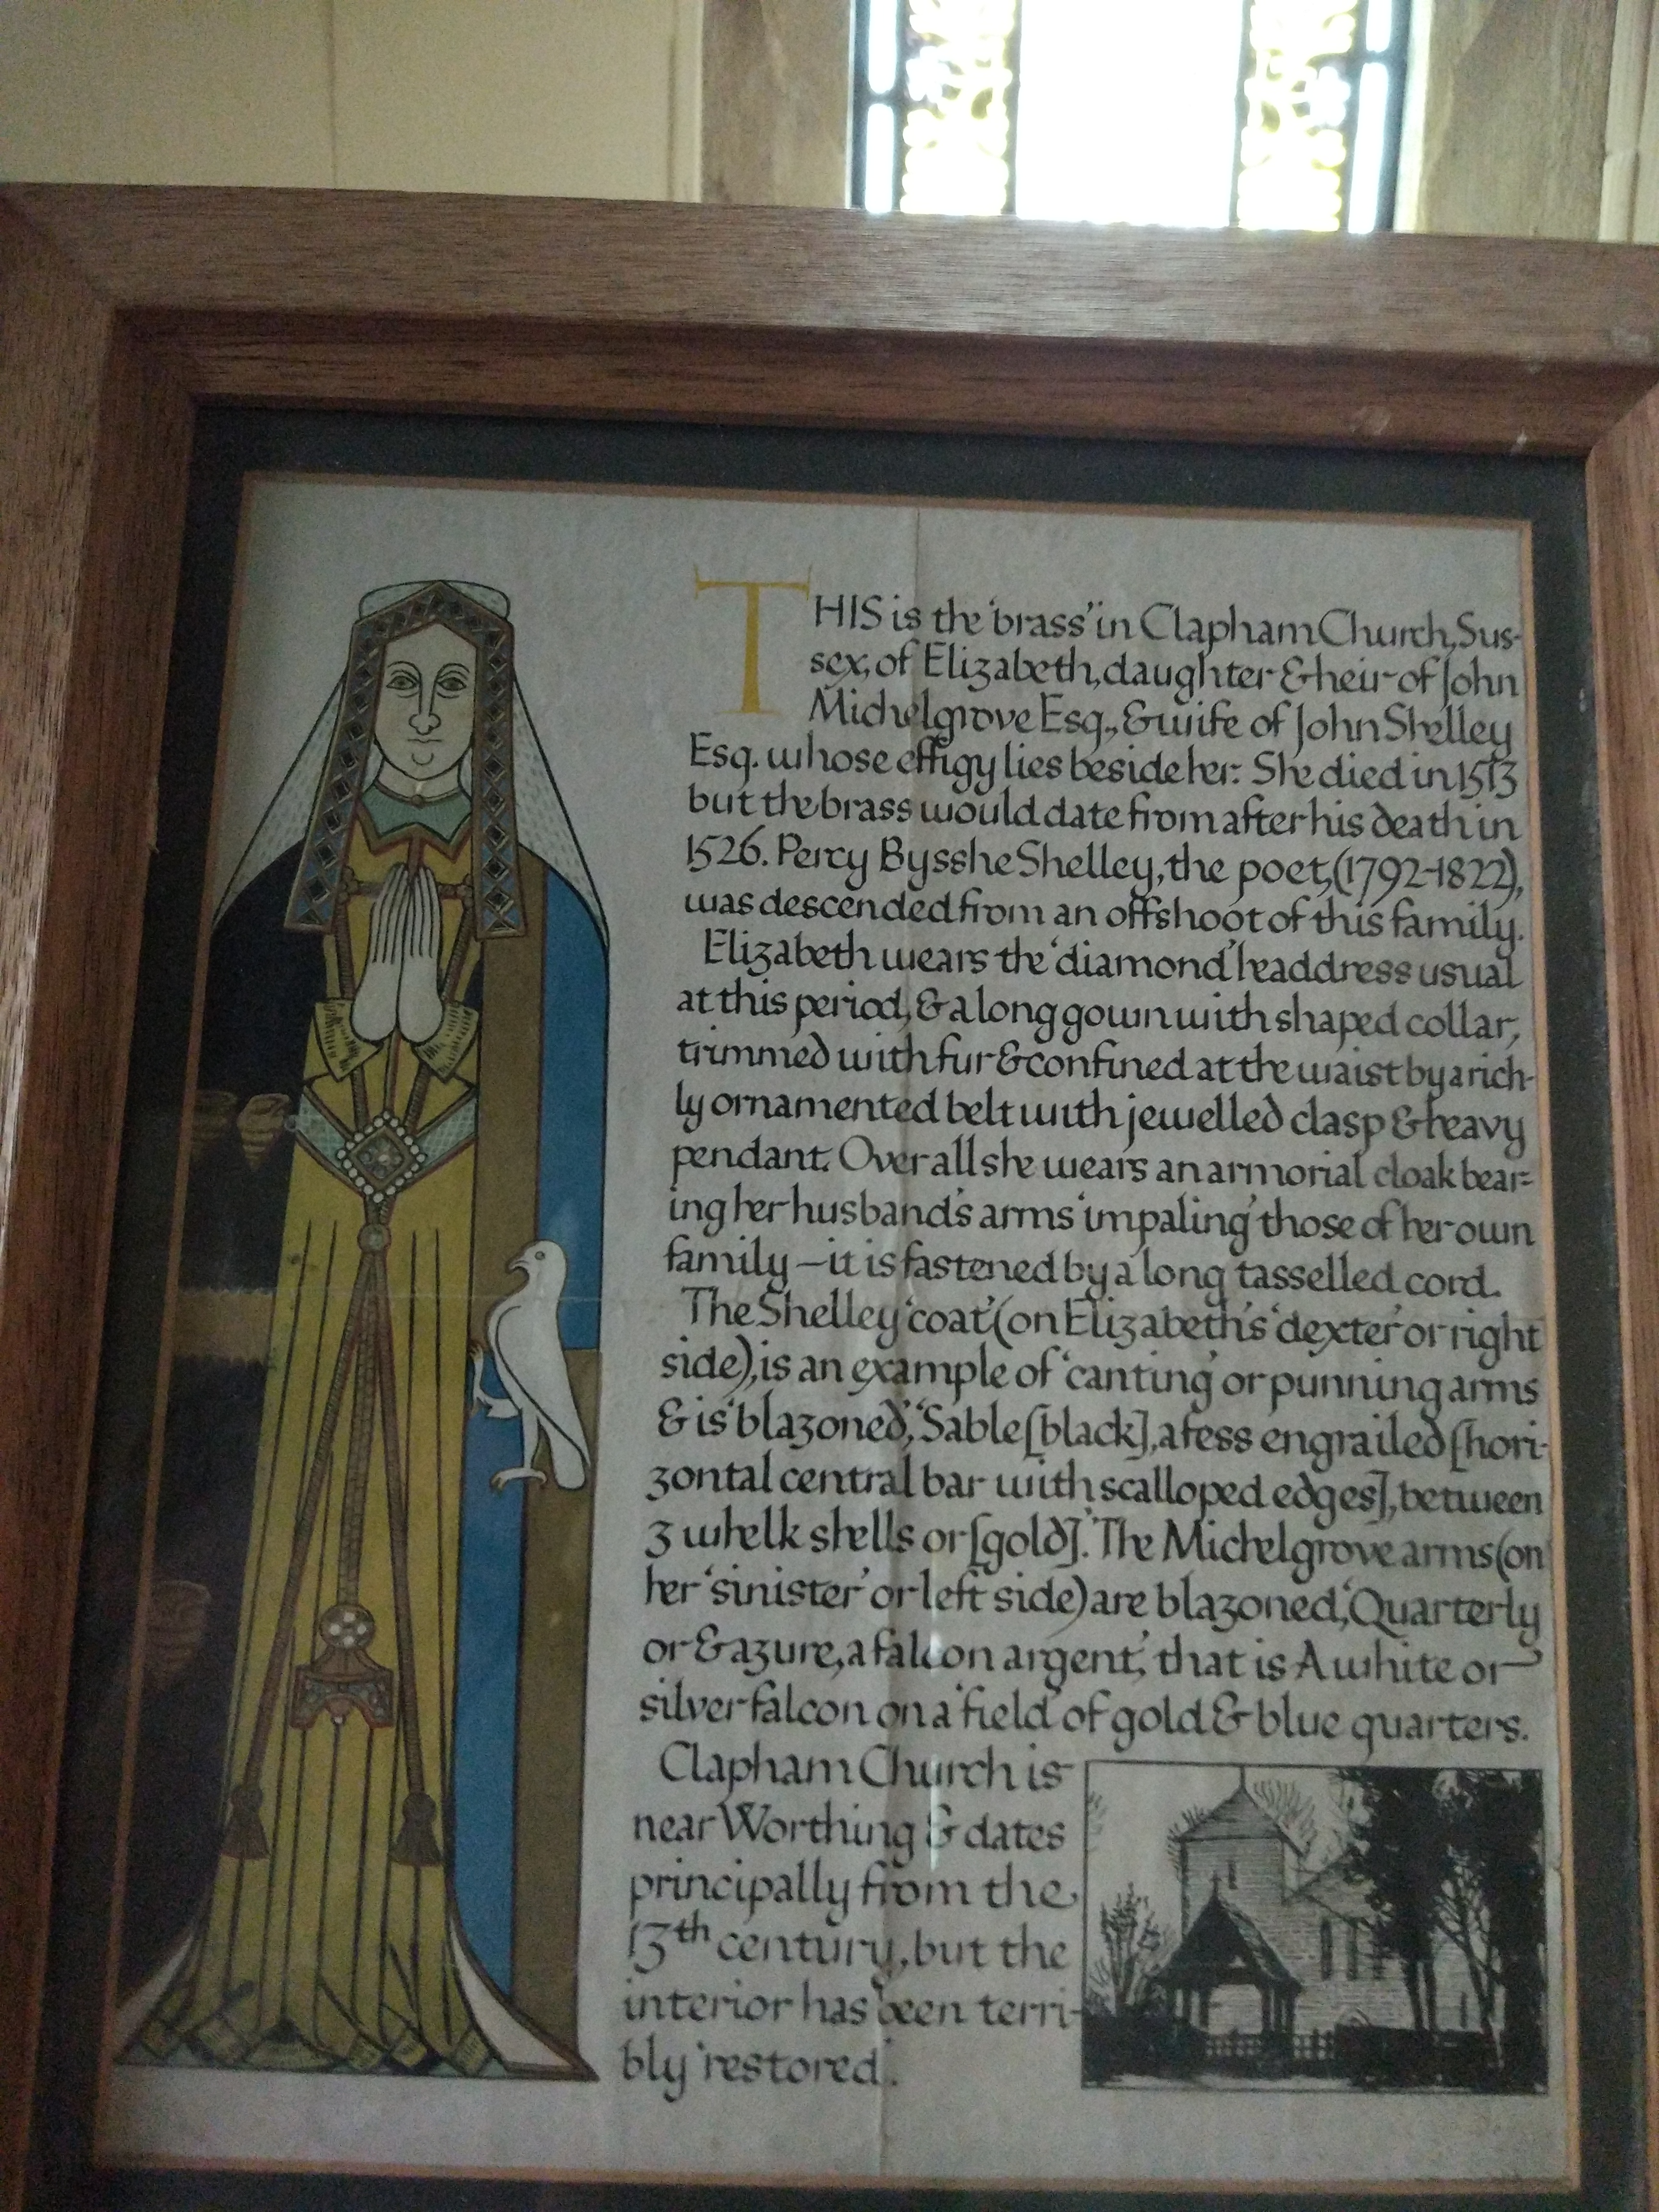 THIS is the 'brass' in Clapham Church, Sus-
sex, of Elizabeth, daughter & heir of John
Michelgrove Esq., & wife of John Shelley
Esq. whose effigy lies beside her. She died in 1513
but the brass would date from after his death in
1526. Percy Bysshe Shelley, the poet, (1792-1822),
was descended from an offshoot of this family.
Elizabeth wears the 'diamond' headdress usual
at this period, & a long gown with shaped collar,
trimmed with fur & confined at the waist by a rich-
ly ornamented belt with jewelled clasp & heavy
pendant. Over all she wears an armorial cloak bear=
ing her husband's arms 'impaling' those of her own
family – it is fastened by a long tasselled cord.
The Shelley 'coat' (on Elizabeth's 'dexter' or right
side), is an example of 'canting' or punning arms
& is 'blazoned', 'Sable [black], a fess engrailed [hori-
zontal central bar with scalloped edges], between
3 whelk shells or [gold].' The Michelgrove arms (on
her 'sinister' or left side) are blazoned, 'Quarterly
or & azure, a falcon argent', that is A white or
silver falcon on a 'field' of gold & blue quarters.
Clapham Church is
near Worthing & dates
principally from the
13th century, but the
interior has been terri-
bly 'restored'.